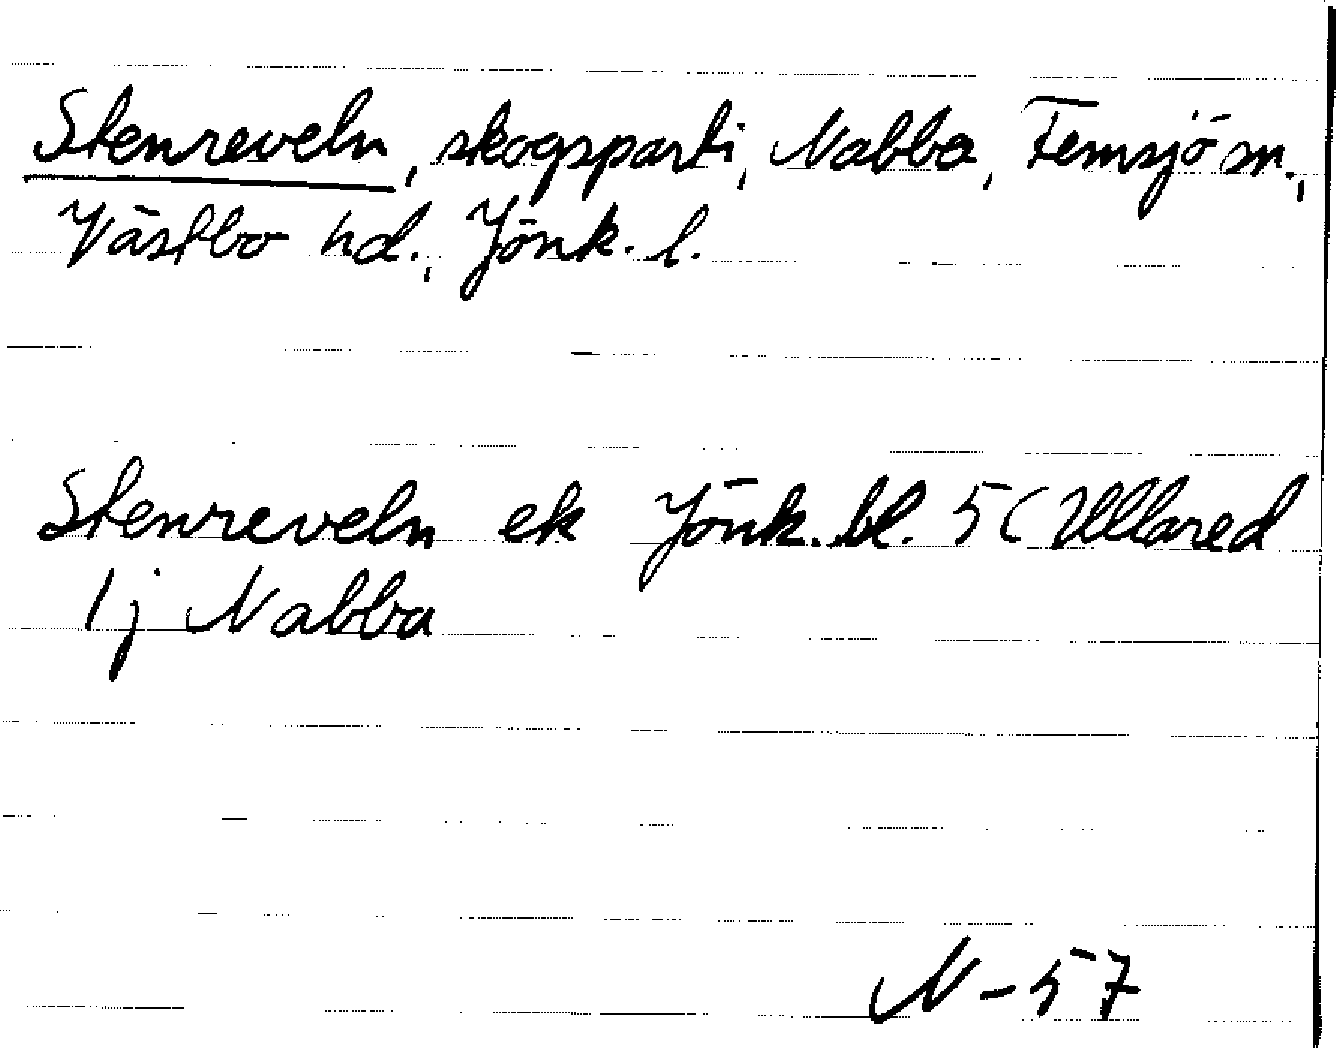 Stenreveln, skogsparti, Nabba, Femsjö sn.,
Västbo hd., Jönk. l.
Stenreveln ek Jönk. bl. 5 (Ullared
1j Nabba
N-57